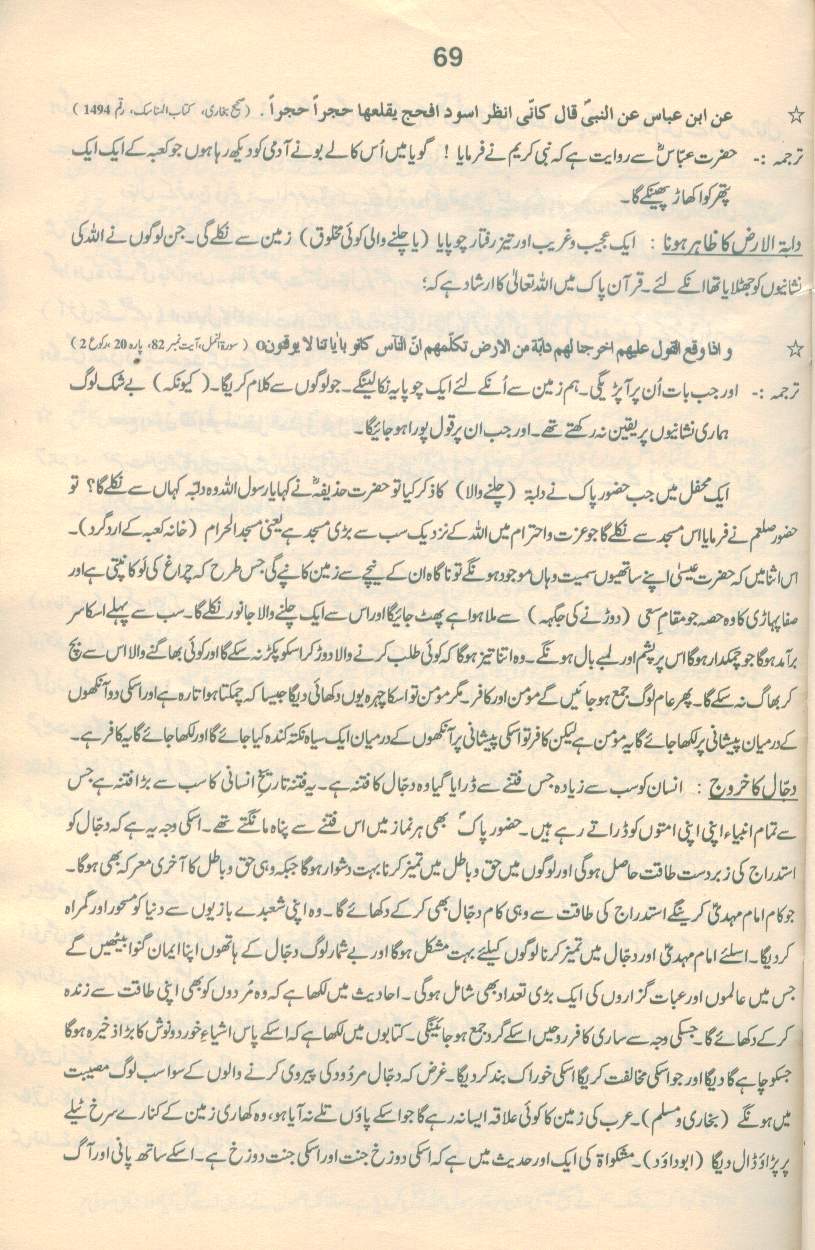 69
☆ عن ابن عباس عن النبیؐ قال کانّی انظر اسود افحج یقلعھا حجراً حجراً ۔ (صحیح بخاری، کتاب المناسک، رقم 1494)
ترجمہ :- حضرت عبّاسؓ سے روایت ہے کہ نبی کریم نے فرمایا ! گویا میں اُس کالے بونے آدمی کو دیکھ رہا ہوں جو کعبہ کے ایک ایک
پتھر کو اکھاڑ پھینکے گا۔
دابۃ الارض کا ظاہر ہونا : ایک عجیب و غریب اور تیز رفتار چوپایا (یا چلنے والی کوئی مخلوق) زمین سے نکلے گی۔ جن لوگوں نے اللہ کی
نشانیوں کو جھٹلایا تھا انکے لئے۔ قرآن پاک میں اللہ تعالیٰ کا ارشاد ہے کہ؛
☆ و اذا وقع القول علیھم اخرجنا لھم دابّة من الارض تکلّمھم انّ النّاس کانو بایٰا تنا لا یوقنون٥ (سورۃ النمل، آیت نمبر 82، پارہ 20، رکوع 2)
ترجمہ :- اور جب بات اُن پر آپڑیگی۔ ہم زمین سے اُنکے لئے ایک چوپایہ نکالینگے۔ جو لوگوں سے کلام کریگا۔ (کیونکہ) بے شک لوگ
ہماری نشانیوں پر یقین نہ رکھتے تھے۔ اور جب ان پر قول پورا ہو جائیگا۔
ایک محفل میں جب حضور پاک نے دابۃ (چلنے والا) کا ذکر کیا تو حضرت حذیفہؓ نے کہا یا رسول اللہ وہ دابّہ کہاں سے نکلے گا؟ تو
حضور صلعم نے فرمایا اس مسجد سے نکلے گا جو عزت و احترام میں اللہ کے نزدیک سب سے بڑی مسجد ہے یعنی مسجد الحرام (خانہ کعبہ کے ارد گرد)۔
اس اثنا میں کہ حضرت عیسیٰؑ اپنے ساتھیوں سمیت وہاں موجود ہونگے تو ناگاہ ان کے نیچے سے زمین کانپے گی جس طرح کہ چراغ کی لَو کانپتی ہے اور
صفا پہاڑی کا وہ حصہ جو مقامِ سعی (دوڑنے کی جگہ) سے ملا ہوا ہے پھٹ جائیگا اور اس سے ایک چلنے والا جانور نکلے گا۔ سب سے پہلے اسکا سر
برآمد ہوگا جو چمکدار ہوگا اس پر پشم اور لمبے بال ہونگے۔ وہ اتنا تیز ہوگا کہ کوئی طلب کرنے والا دوڑ کر اسکو پکڑ نہ سکے گا اور کوئی بھاگنے والا اس سے بچ
کر بھاگ نہ سکے گا۔ پھر عام لوگ جمع ہو جائیں گے مومن اور کافر۔ مگر مومن تو اسکا چہرہ یوں دکھائی دیگا جیسا کہ چمکتا ہوا تارہ ہے اور اسکی دو آنکھوں
کے درمیان پیشانی پر لکھا جائے گا یہ مومن ہے لیکن کافر تو اسکی پیشانی پر آنکھوں کے درمیان ایک سیاہ نکتہ کندہ کیا جائے گا اور لکھا جائے گا یہ کافر ہے۔
دجّال کا خروج : انسان کو سب سے زیادہ جس فتنے سے ڈرایا گیا وہ دجّال کا فتنہ ہے۔ یہ فتنہ تاریخِ انسانی کا سب سے بڑا فتنہ ہے جس
سے تمام انبیاء اپنی اپنی امتوں کو ڈراتے رہے ہیں۔ حضور پاکؐ بھی ہر نماز میں اس فتنے سے پناہ مانگتے تھے۔ اسکی وجہ یہ ہے کہ دجّال کو
استدراج کی زبردست طاقت حاصل ہوگی اور لوگوں میں حق و باطل میں تمیز کرنا بہت دشوار ہوگا جبکہ وہی حق و باطل کا آخری معرکہ بھی ہوگا۔
جو کام امام مہدیؑ کرینگے استدراج کی طاقت سے وہی کام دجّال بھی کر کے دکھائے گا۔ وہ اپنی شعبدے بازیوں سے دنیا کو مسحور اور گمراہ
کر دیگا۔ اسلئے امام مہدیؑ اور دجّال میں تمیز کرنا لوگوں کیلئے بہت مشکل ہوگا اور بے شمار لوگ دجّال کے ہاتھوں اپنا ایمان گنوا بیٹھیں گے
جس میں عالموں اور عبات گزاروں کی ایک بڑی تعداد بھی شامل ہوگی۔ احادیث میں لکھا ہے کہ وہ مُردوں کو بھی اپنی طاقت سے زندہ
کر کے دکھائے گا۔ جسکی وجہ سے ساری کافر روحیں اسکے گرد جمع ہو جائینگی۔ کتابوں میں لکھا ہے کہ اسکے پاس اشیاءِ خوردونوش کا بڑا ذخیرہ ہوگا
جسکو چاہے گا دیگا اور جو اسکی مخالفت کریگا اسکی خوراک بند کر دیگا۔ غرض کہ دجّال مردُود کی پیروی کرنے والوں کے سوا سب لوگ مصیبت
میں ہونگے (بخاری و مسلم)۔ عرب کی زمین کا کوئی علاقہ ایسا نہ رہے گا جو اسکے پاؤں تلے نہ آیا ہو، وہ کھاری زمین کے کنارے سرخ ٹیلے
پر پڑاؤ ڈال دیگا (ابوداؤد)۔ مشکواۃ کی ایک اور حدیث میں ہے کہ اسکی دوزخ جنت اور اسکی جنت دوزخ ہے۔ اسکے ساتھ پانی اور آگ